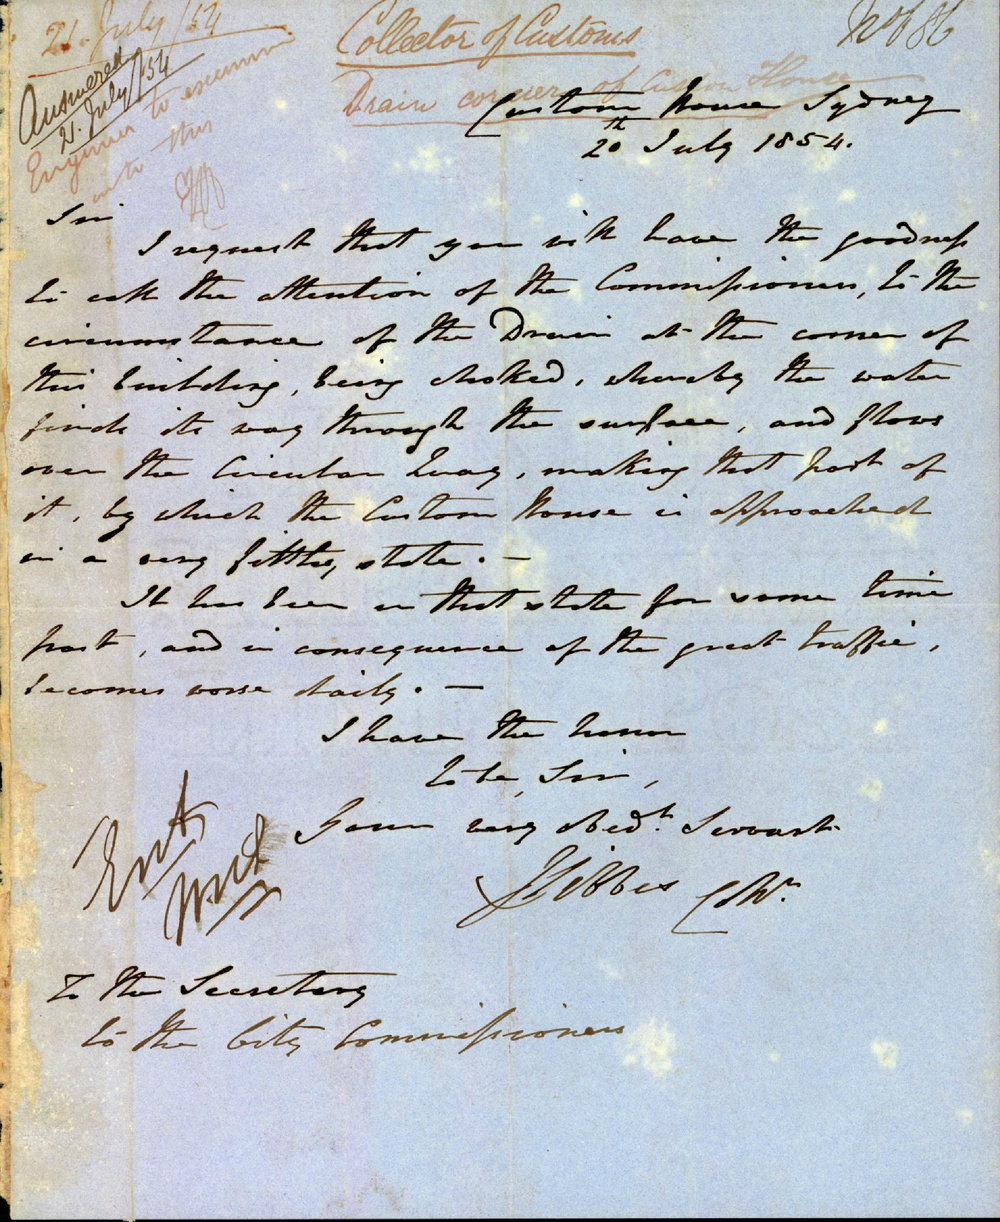 21. July /54
Collector of Customs
No 86
Answered
21. July /54
Drain corner of Custom House
Engineer to examine
into this
Custom House Sydney
20th July 1854.
Sir
I request that you will have the goodness
to call the attention of the Commissioners, to the
circumstance of the Drain at the corner of
this building, being choked, whereby the water
finds its way through the surface, and flows
over the Circular Quay, making that part of
it, by which the Custom House is approached
in a very filthy state. —
It has been in that state for some time
past, and in consequence of the great traffic,
becomes worse daily. —
I have the honor
to be, Sir,
Your very Obedt. Servant
JGibbes
To the Secretary
to the City Commissioners